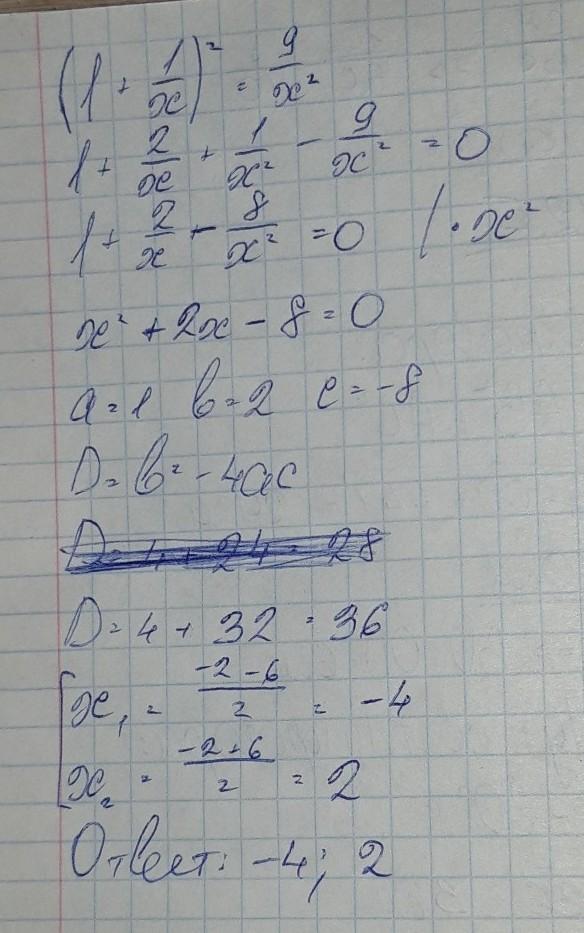 (1 + 1/x)² = 9/x²
1 + 2/x + 1/x² - 9/x² = 0
1 + 2/x - 8/x² = 0 | · x²
x² + 2x - 8 = 0
a = 1 b = 2 c = -8
D = b² - 4ac
D = 4 + 24 = 28
D = 4 + 32 = 36
[x₁ = (-2 - 6)/2 = -4
x₂ = (-2 + 6)/2 = 2
Ответ: -4; 2